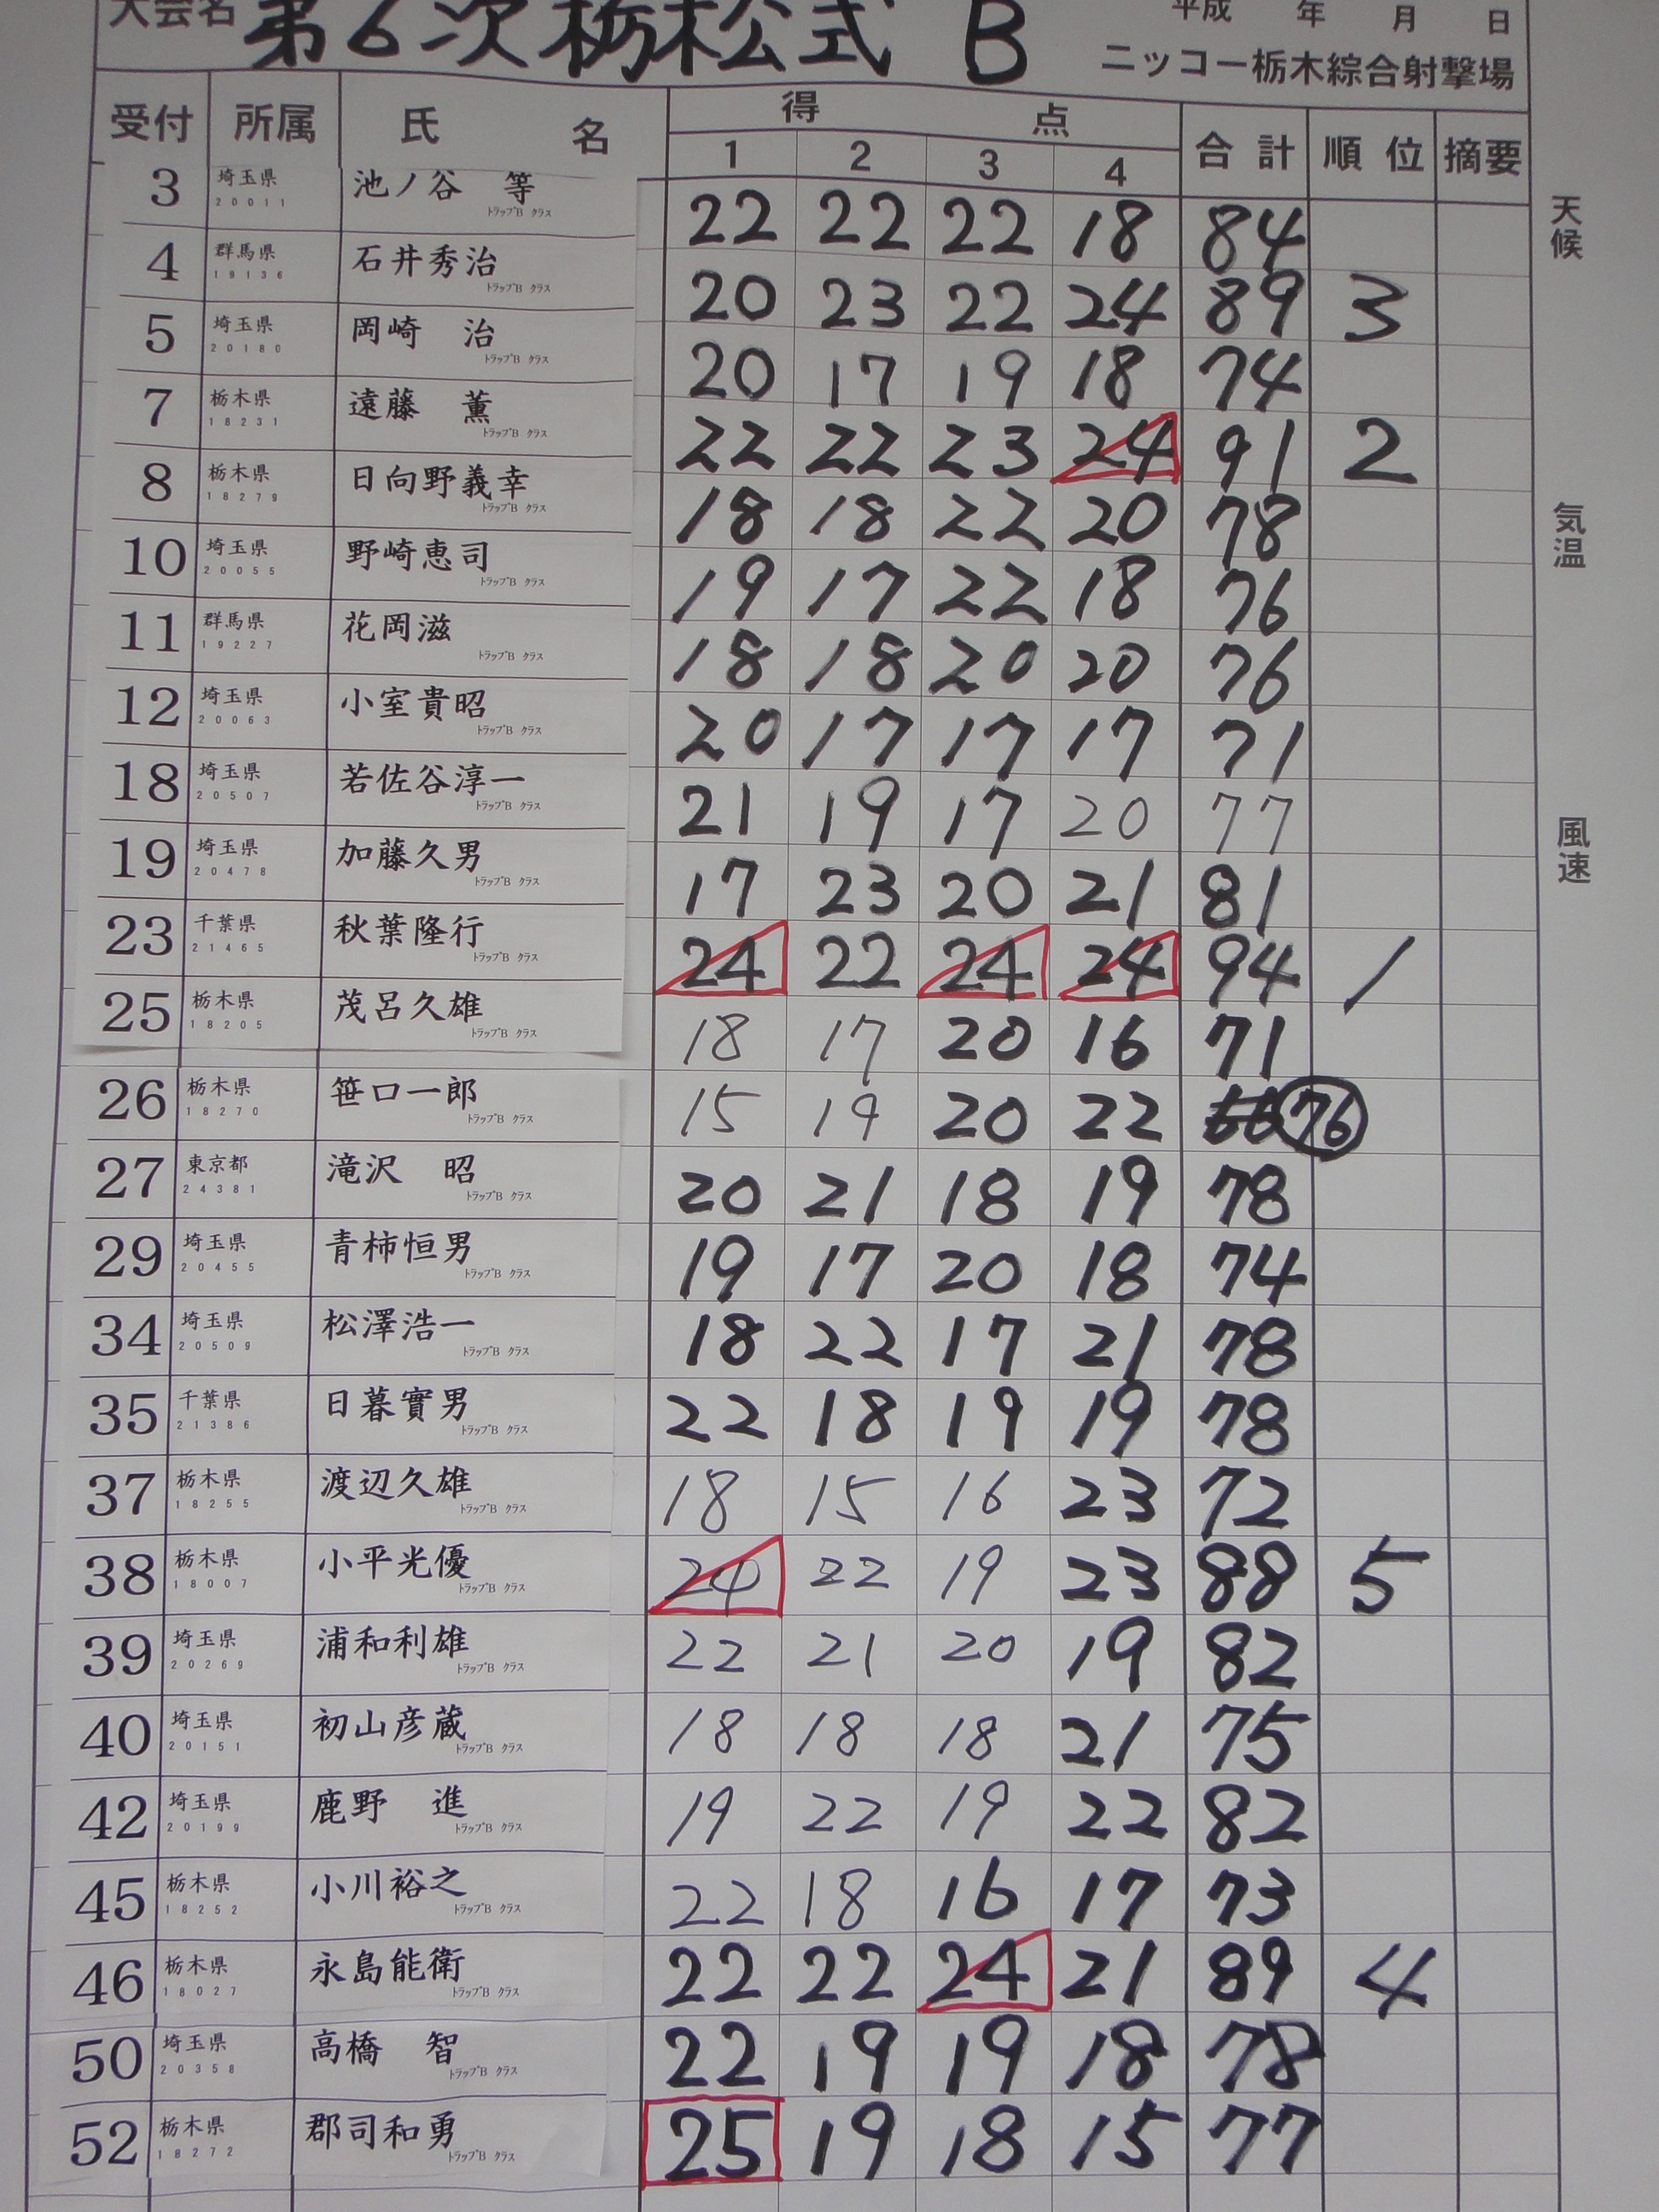 大会名 第6次栃松式 B 平成 年 月 日
ニッコー栃木綜合射撃場
受付 所属 氏 名 得 点 合計 順位 摘要
1 2 3 4
3 埼玉県 20011 池ノ谷 等 トラップB クラス 22 22 22 18 84
4 群馬県 19136 石井秀治 トラップB クラス 20 23 22 24 89 3
5 埼玉県 20180 岡崎 治 トラップB クラス 20 17 19 18 74
7 栃木県 18231 遠藤 薫 トラップB クラス 22 22 23 24 91 2
8 栃木県 18279 日向野義幸 トラップB クラス 18 18 22 20 78
10 埼玉県 20055 野崎恵司 トラップB クラス 19 17 22 18 76
11 群馬県 19227 花岡滋 トラップB クラス 18 18 20 20 76
12 埼玉県 20063 小室貴昭 トラップB クラス 20 17 17 17 71
18 埼玉県 20507 若佐谷淳一 トラップB クラス 21 19 17 20 77
19 埼玉県 20478 加藤久男 トラップB クラス 17 23 20 21 81
23 千葉県 21465 秋葉隆行 トラップB クラス 24 22 24 24 94 1
25 栃木県 18205 茂呂久雄 トラップB クラス 18 17 20 16 71
26 栃木県 18270 笹口一郎 トラップB クラス 15 19 20 22 76
27 東京都 24381 滝沢 昭 トラップB クラス 20 21 18 19 78
29 埼玉県 20455 青柿恒男 トラップB クラス 19 17 20 18 74
34 埼玉県 20509 松澤浩一 トラップB クラス 18 22 17 21 78
35 千葉県 21386 日暮實男 トラップB クラス 22 18 19 19 78
37 栃木県 18255 渡辺久雄 トラップB クラス 18 15 16 23 72
38 栃木県 18007 小平光優 トラップB クラス 24 22 19 23 88 5
39 埼玉県 20269 浦和利雄 トラップB クラス 22 21 20 19 82
40 埼玉県 20151 初山彦蔵 トラップB クラス 18 18 18 21 75
42 埼玉県 20199 鹿野 進 トラップB クラス 19 22 19 22 82
45 栃木県 18252 小川裕之 トラップB クラス 22 18 16 17 73
46 栃木県 18027 永島能衛 トラップB クラス 22 22 24 21 89 4
50 埼玉県 20358 高橋 智 トラップB クラス 22 19 19 18 78
52 栃木県 18272 郡司和勇 トラップB クラス 25 19 18 15 77
天候
気温
風速